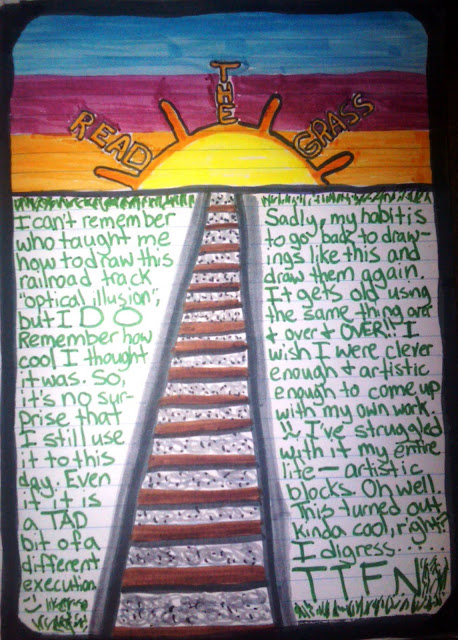 READ THE GRASS
I can't remember
who taught me
how to draw this
railroad track
"optical illusion",
but I DO
Remember how
cool I thought
it was. So,
it's no sur-
prise that
I still use
it to this
day. Even
if it is
a TAD
bit of a
different
execution
Sadly, my habit is
to go back to draw-
ings like this and
draw them again.
It gets old using
the same thing over
& over & OVER!! I
wish I were clever
enough & artistic
enough to come up
with my own work.
I've struggled
with it my entire
life - artistic
blocks. Oh well.
This turned out
kinda cool, right?
I digress....
TTFN